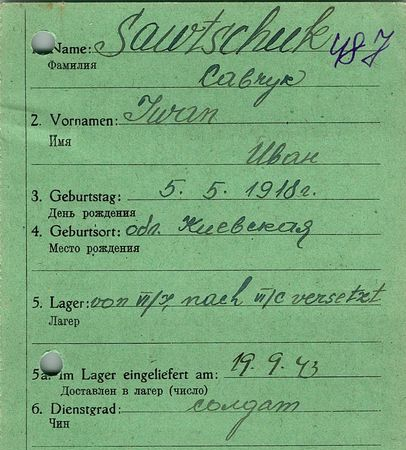 1. Name: Sawtschuk 487
Фамилия
Савчук
2. Vornamen: Iwan
Имя
Иван
3. Geburtstag: 5. 5. 1918 г.
День рождения
4. Geburtsort: обл. Киевская
Место рождения
5. Lager: von II/x, nach III/c versetzt
Лагер
5a. Im Lager eingeliefert am: 19. 9. 43
Доставлен в лагер (число)
6. Dienstgrad: солдат
Чин